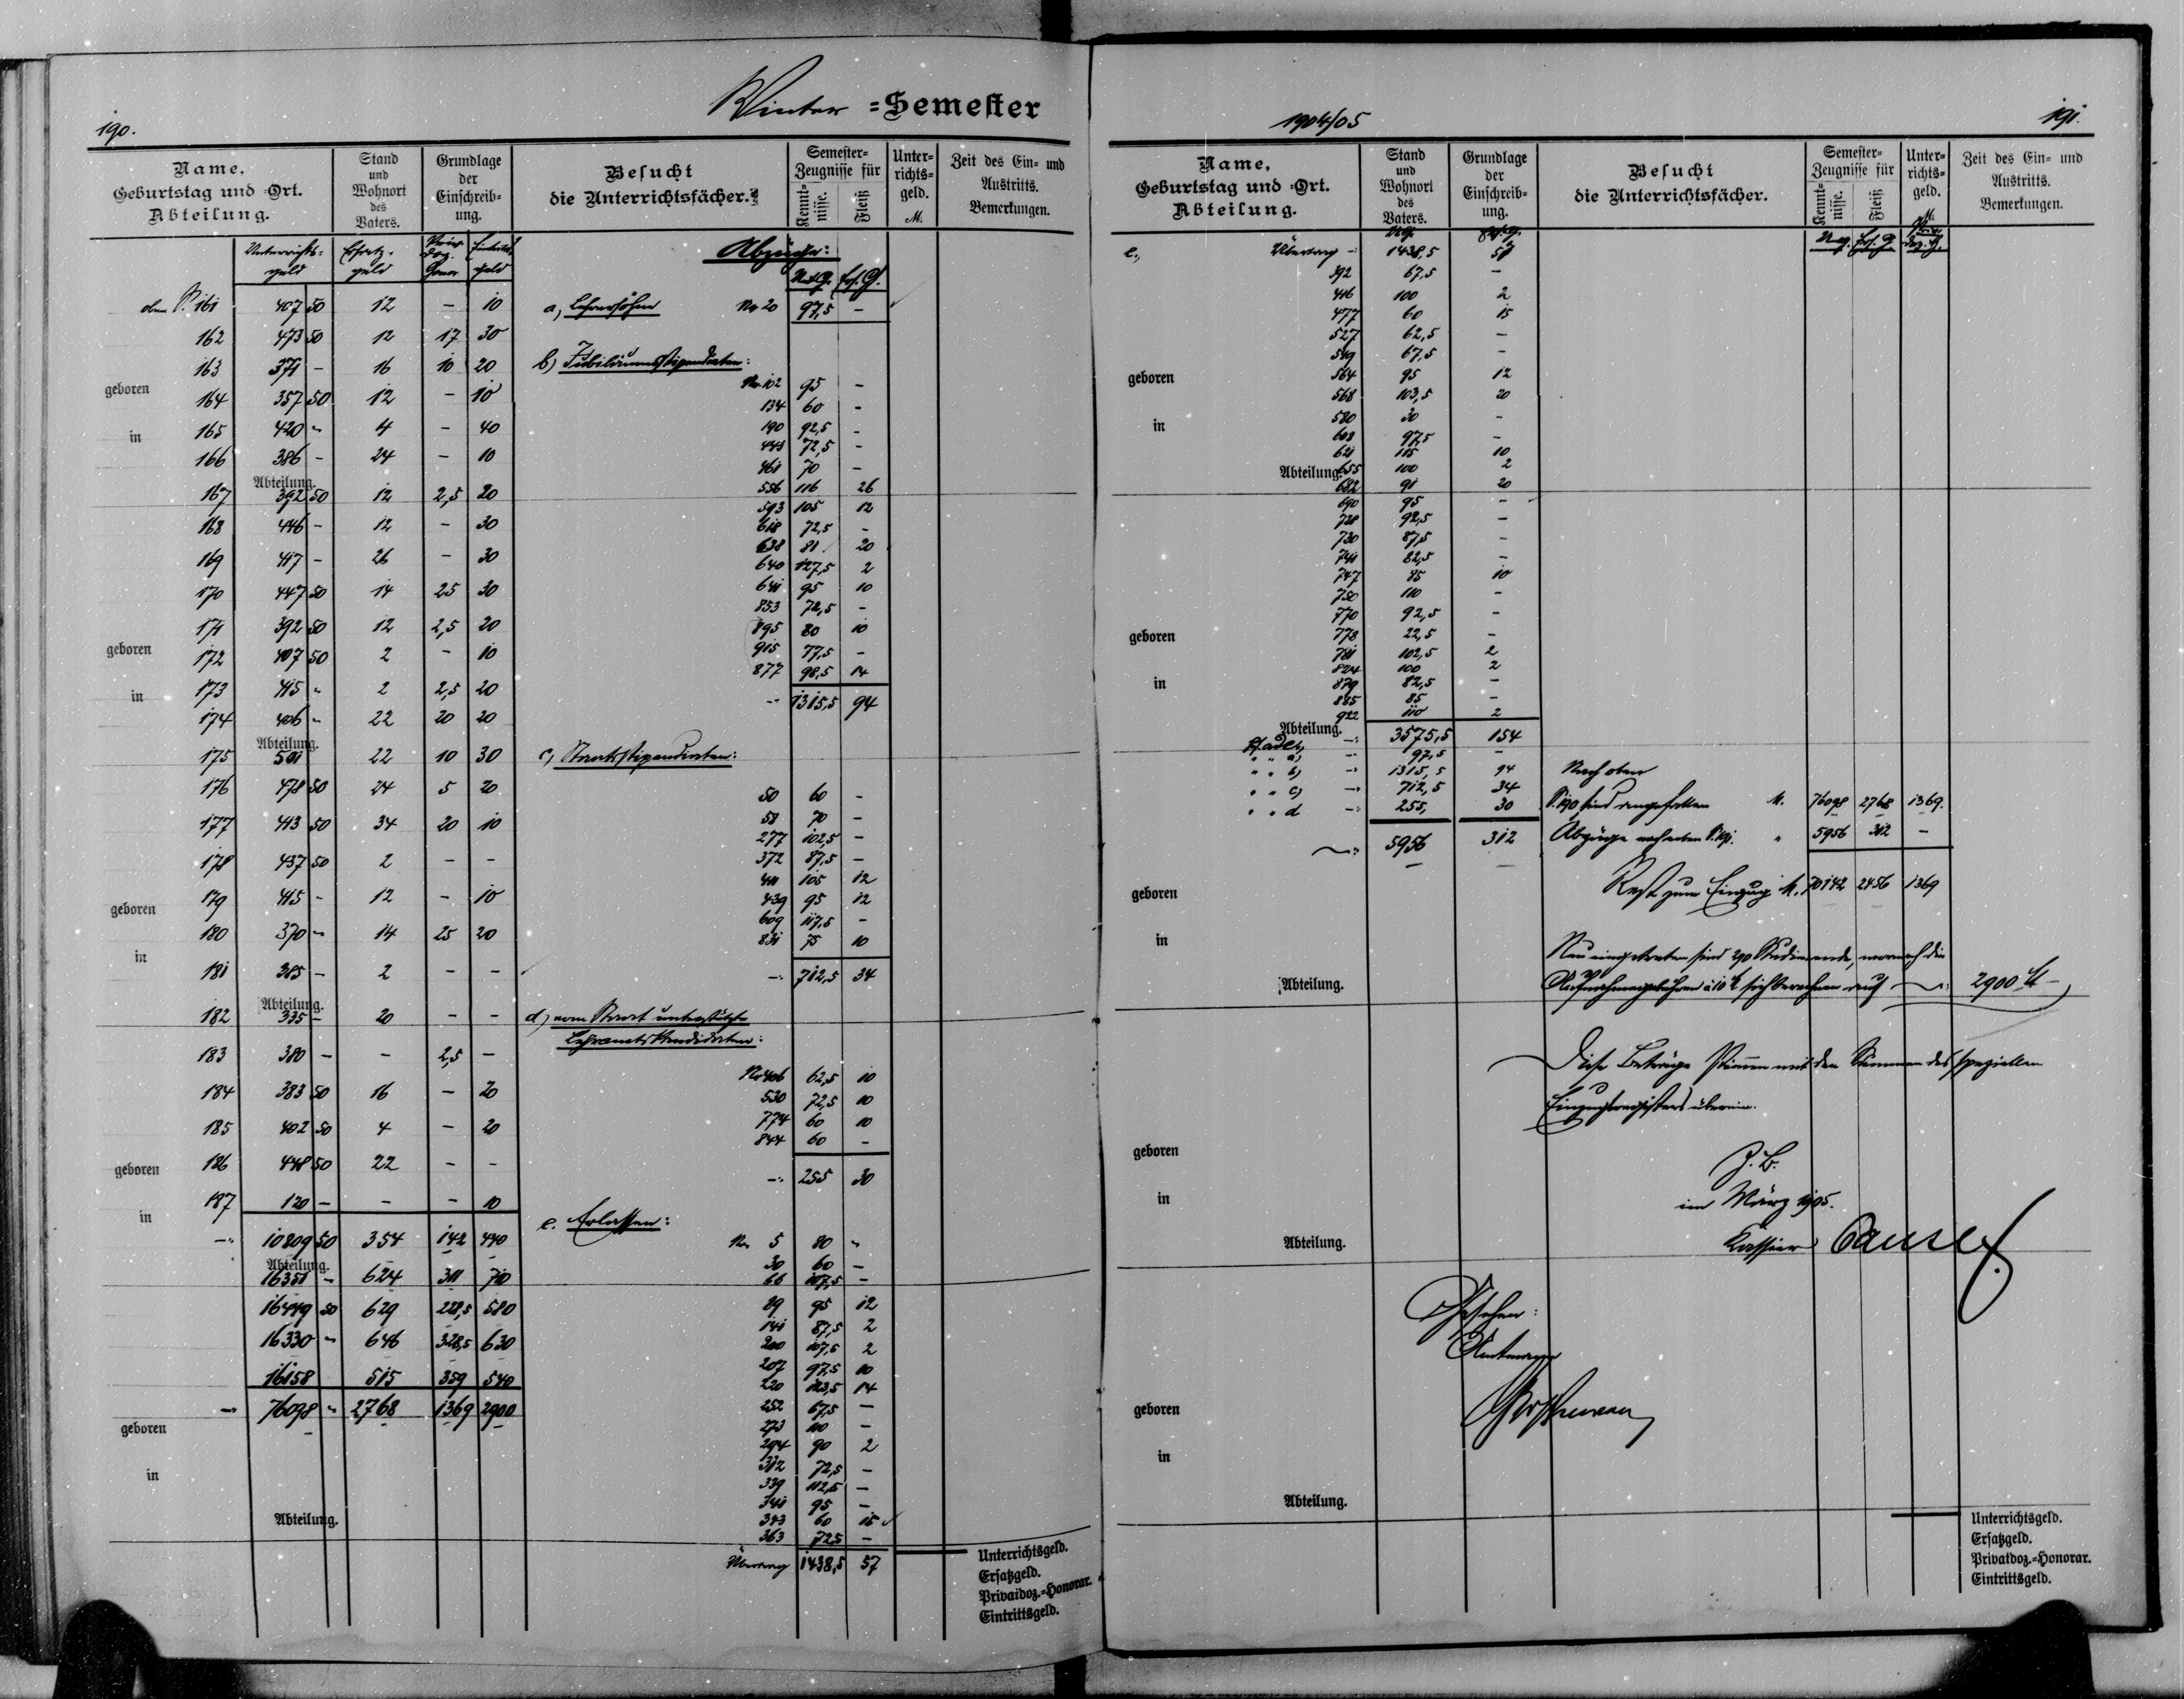 190.
Winter =Semester
Name, Geburtstag und =Ort. Abteilung.
Stand und Wohnort des Vaters.
Grundlage der Einschreib= ung.
Besucht die Unterrichtsfächer.
Semester= Zeugnisse für
Kennt= nisse.
Fleiß
Unter= richts= geld. M.
Zeit des Ein= und Austritts. Bemerkungen.
Unterrichts= geld
Ersatz. geld
Eintritts geld
oben S. 161 407 50 12 – 10
162 473 50 12 17 30
163 371 – 16 10 20
geboren
164 357 50 12 – 10
in
165 420 " 4 – 40
166 386 – 24 – 10
Abteilung.
167 392 50 12 2,5 20
168 446 – 12 – 30
169 417 – 26 – 30
170 447 50 14 25 30
171 392 50 12 2,5 20
geboren
172 407 50 2 – 10
in
173 415 " 2 2,5 20
174 406 " 22 20 20
Abteilung.
175 501 22 10 30
176 478 50 24 5 20
177 413 50 34 20 10
178 437 50 2 – –
geboren
179 415 – 12 – 10
180 370 " 14 25 20
in
181 385 – 2 – –
Abteilung.
182 335 – 20 – –
183 380 – – 2,5 –
184 383 50 16 – 20
185 402 50 4 – 20
geboren
186 448 50 22 – –
187 120 – – – 10
in
10809 50 354 142 440
Abteilung.
16351 – 624 311 710
16449 50 629 228,5 580
16330 " 646 328,5 630
16158 515 359 540
76098 " 2768 1369 2900
geboren
in
Abteilung.
Abzüge:
U.G. Ers. G.
a) Lehrersöhne No 20 97,5 –
b) Jubiläumsstipendiaten:
No 102 95 –
134 60 –
190 92,5 –
448 72,5 –
461 70 –
556 116 26
593 105 12
618 72,5 –
638 81 20
640 127,5 2
641 95 10
853 72,5 –
895 80 10
915 77,5 –
877 98,5 14
1315,5 94
c) Staatsstipendiaten:
50 60 –
58 70 –
277 102,5 –
372 87,5 –
411 105 12
439 95 12
609 117,5 –
831 75 10
712,5 34
d) vom Staat unterstützte
Lehramtskandidaten:
No 406 62,5 10
530 72,5 10
774 60 10
844 60 –
255 30
e. Erlassen:
No 5 80 "
30 60 –
66 107,5 –
89 95 12
141 87,5 2
200 107,5 2
207 97,5 10
220 123,5 14
252 67,5 –
273 100 –
294 90 2
312 72,5 –
339 112,5 –
341 95 –
343 60 15
363 72,5 –
Übertrag 1438,5 57
Unterrichtsgeld.
Ersatzgeld.
Privatdoz.=Honorar.
Eintrittsgeld.
1904/05
191.
Name, Geburtstag und =Ort. Abteilung.
Stand und Wohnort des Vaters.
Grundlage der Einschreib= ung.
Besucht die Unterrichtsfächer.
Semester= Zeugnisse für
Kennt= nisse.
Fleiß
Unter= richts= geld. M.
Zeit des Ein= und Austritts. Bemerkungen.
e, Übertrag 1438,5 57
392 67,5 –
446 100 2
477 60 15
527 62,5 –
549 67,5 –
geboren
564 95 12
568 103,5 20
580 30 –
in
608 97,5 –
621 115 10
Abteilung.
655 100 2
682 91 20
690 95 –
728 92,5 –
730 87,5 –
741 82,5 –
747 85 10
750 110 –
770 92,5 –
geboren
778 22,5 –
781 102,5 2
824 100 2
in
879 82,5 –
885 85 –
922 110 2
Abteilung.
3575,5 154
" " a) 97,5 –
" " b) 1315,5 94
" " c) 712,5 34
" " d 255, 30
5956 312
Nach oben
S. 190 sind angefallen M. 76098 2768 1369.
Abzüge nach oben S. 191. " 5956 312 –
Rest zum Einzug M. 70142 2456 1369
geboren
in
Abteilung.
Neu eingetreten sind 290 Studierende, wornach die
Aufnahmegebühren à 10 M sich berechnen auf 2900 M –
Diese Beträge stimmen mit den Summen des speziellen
Einzugsregisters überein.
geboren
in
Abteilung.
Z. B.
im März 1905.
Kassier
Gesehen:
geboren
in
Abteilung.
Unterrichtsgeld.
Ersatzgeld.
Privatdoz.=Honorar.
Eintrittsgeld.